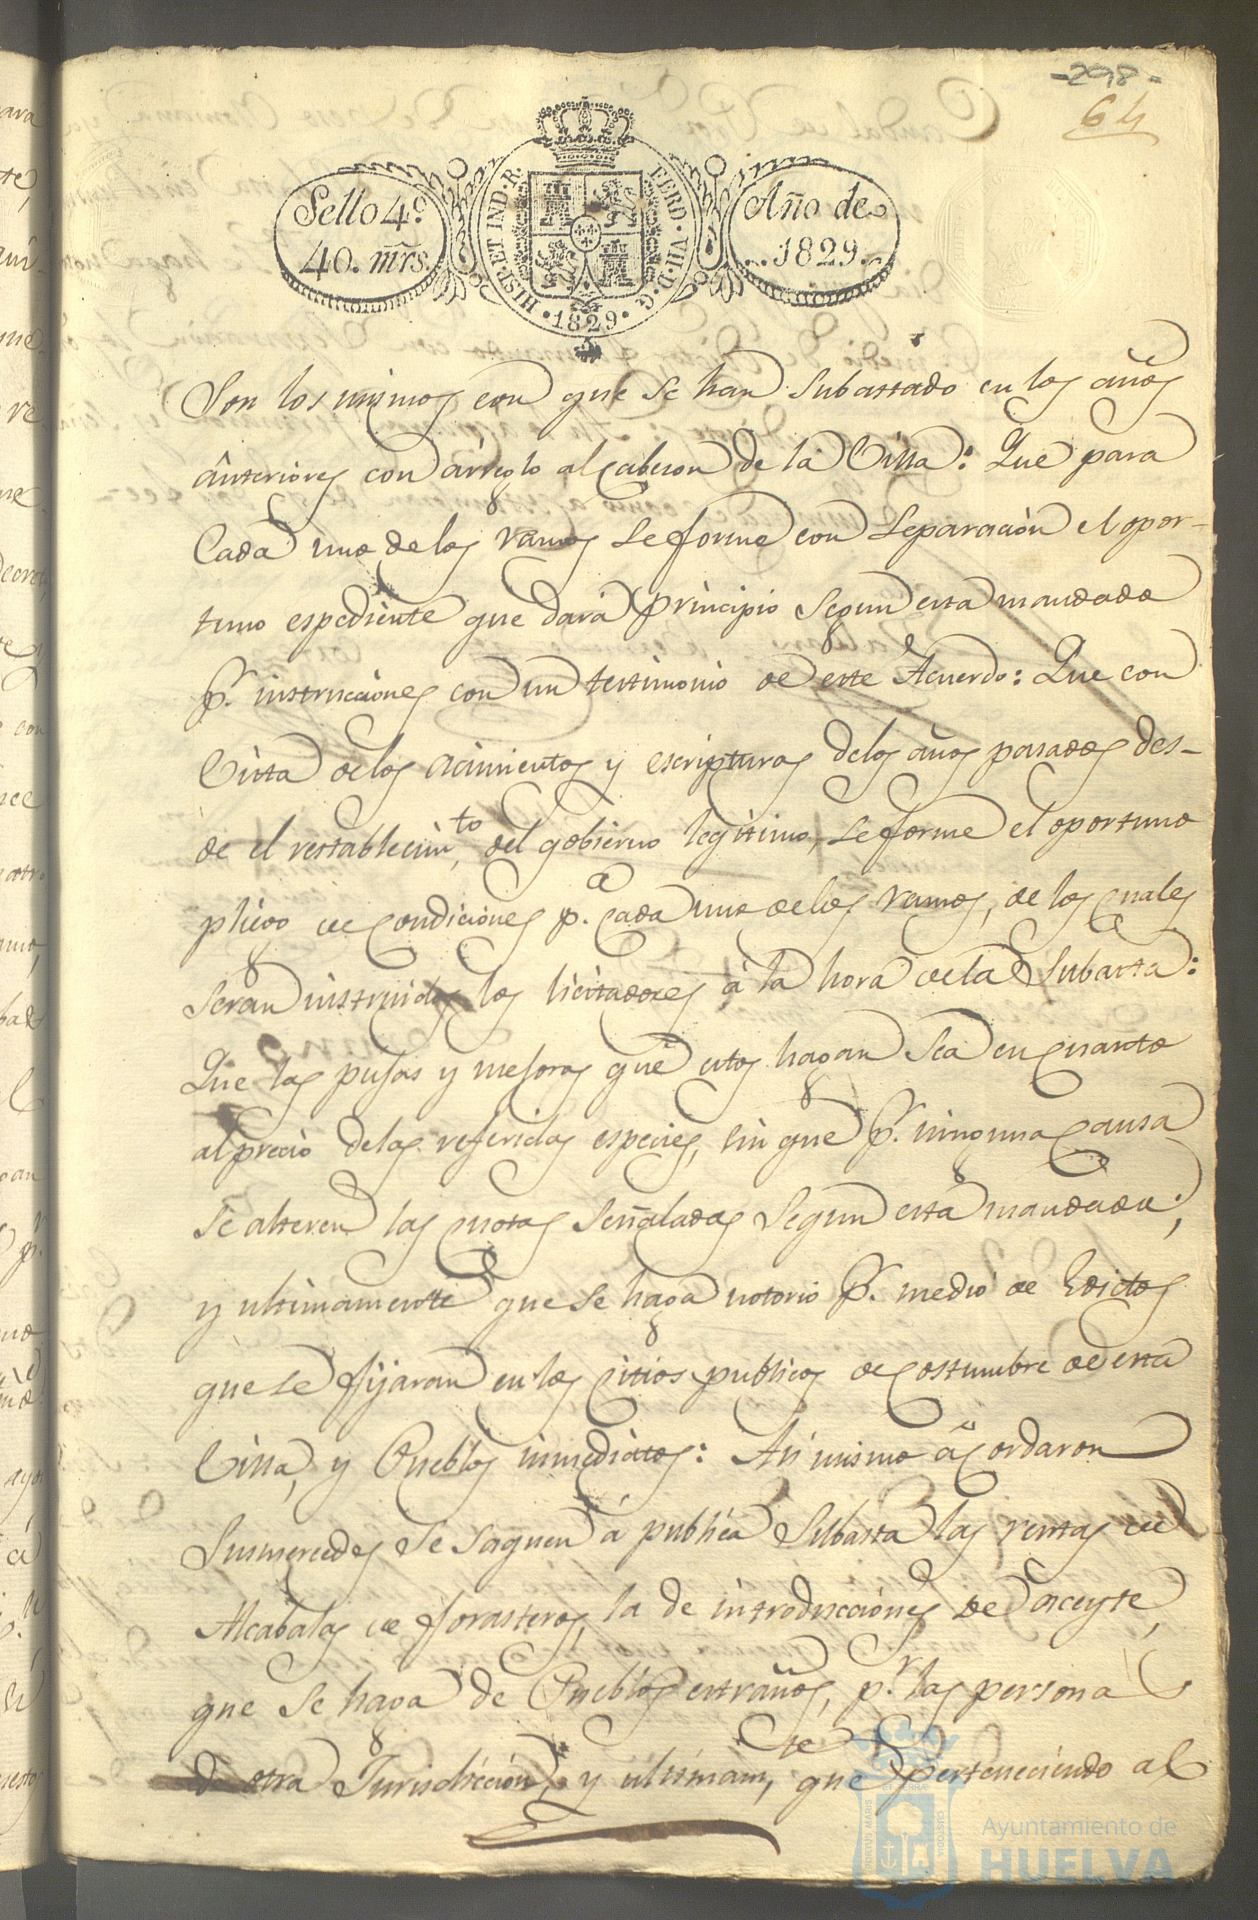 -298-
64
Sello 4º
40. mrs.
HISP. ET IND. R.
FERD. VII. D. G.
1829
Año de
1829.
Son los mismos con que se han subastado en los años
anteriores con arreglo al cabeson de la Villa: Que para
Cada uno de los ramos se forme con separación el opor-
tuno espediente que dará principio segun esta mandado
pr. instrucciones con un testimonio de este Acuerdo: Que con
Vista de los acimientos y escripturas de los años pasados des-
de el restablecimto, del gobierno legitimo, se forme el oportuno
pliego de condiciones pa. cada uno de los ramos, de los cuales
seran instruidos los licitadores á la hora de la subasta:
Que las pujas y mejoras que estos hagan sea en cuanto
al precio de las referidas especies, sin que pr. ninguna causa
se alteren las cuotas señaladas segun está mandado;
y ultimamente que se haga notorio pr. medio de Edictos
que se fijaran en los sitios publicos de costumbre de esta
Villa, y Pueblos inmediatos: Asi mismo acordaron
Susmercedes se saquen á publica subasta las rentas de
Alcabalas de forasteros, la de introducciones de aceyte,
que se haga de Pueblos estraños, pr. las persona
de otra Jurisdiccion, y ultimamte, que perteneciendo al
Ayuntamiento de
HUELVA